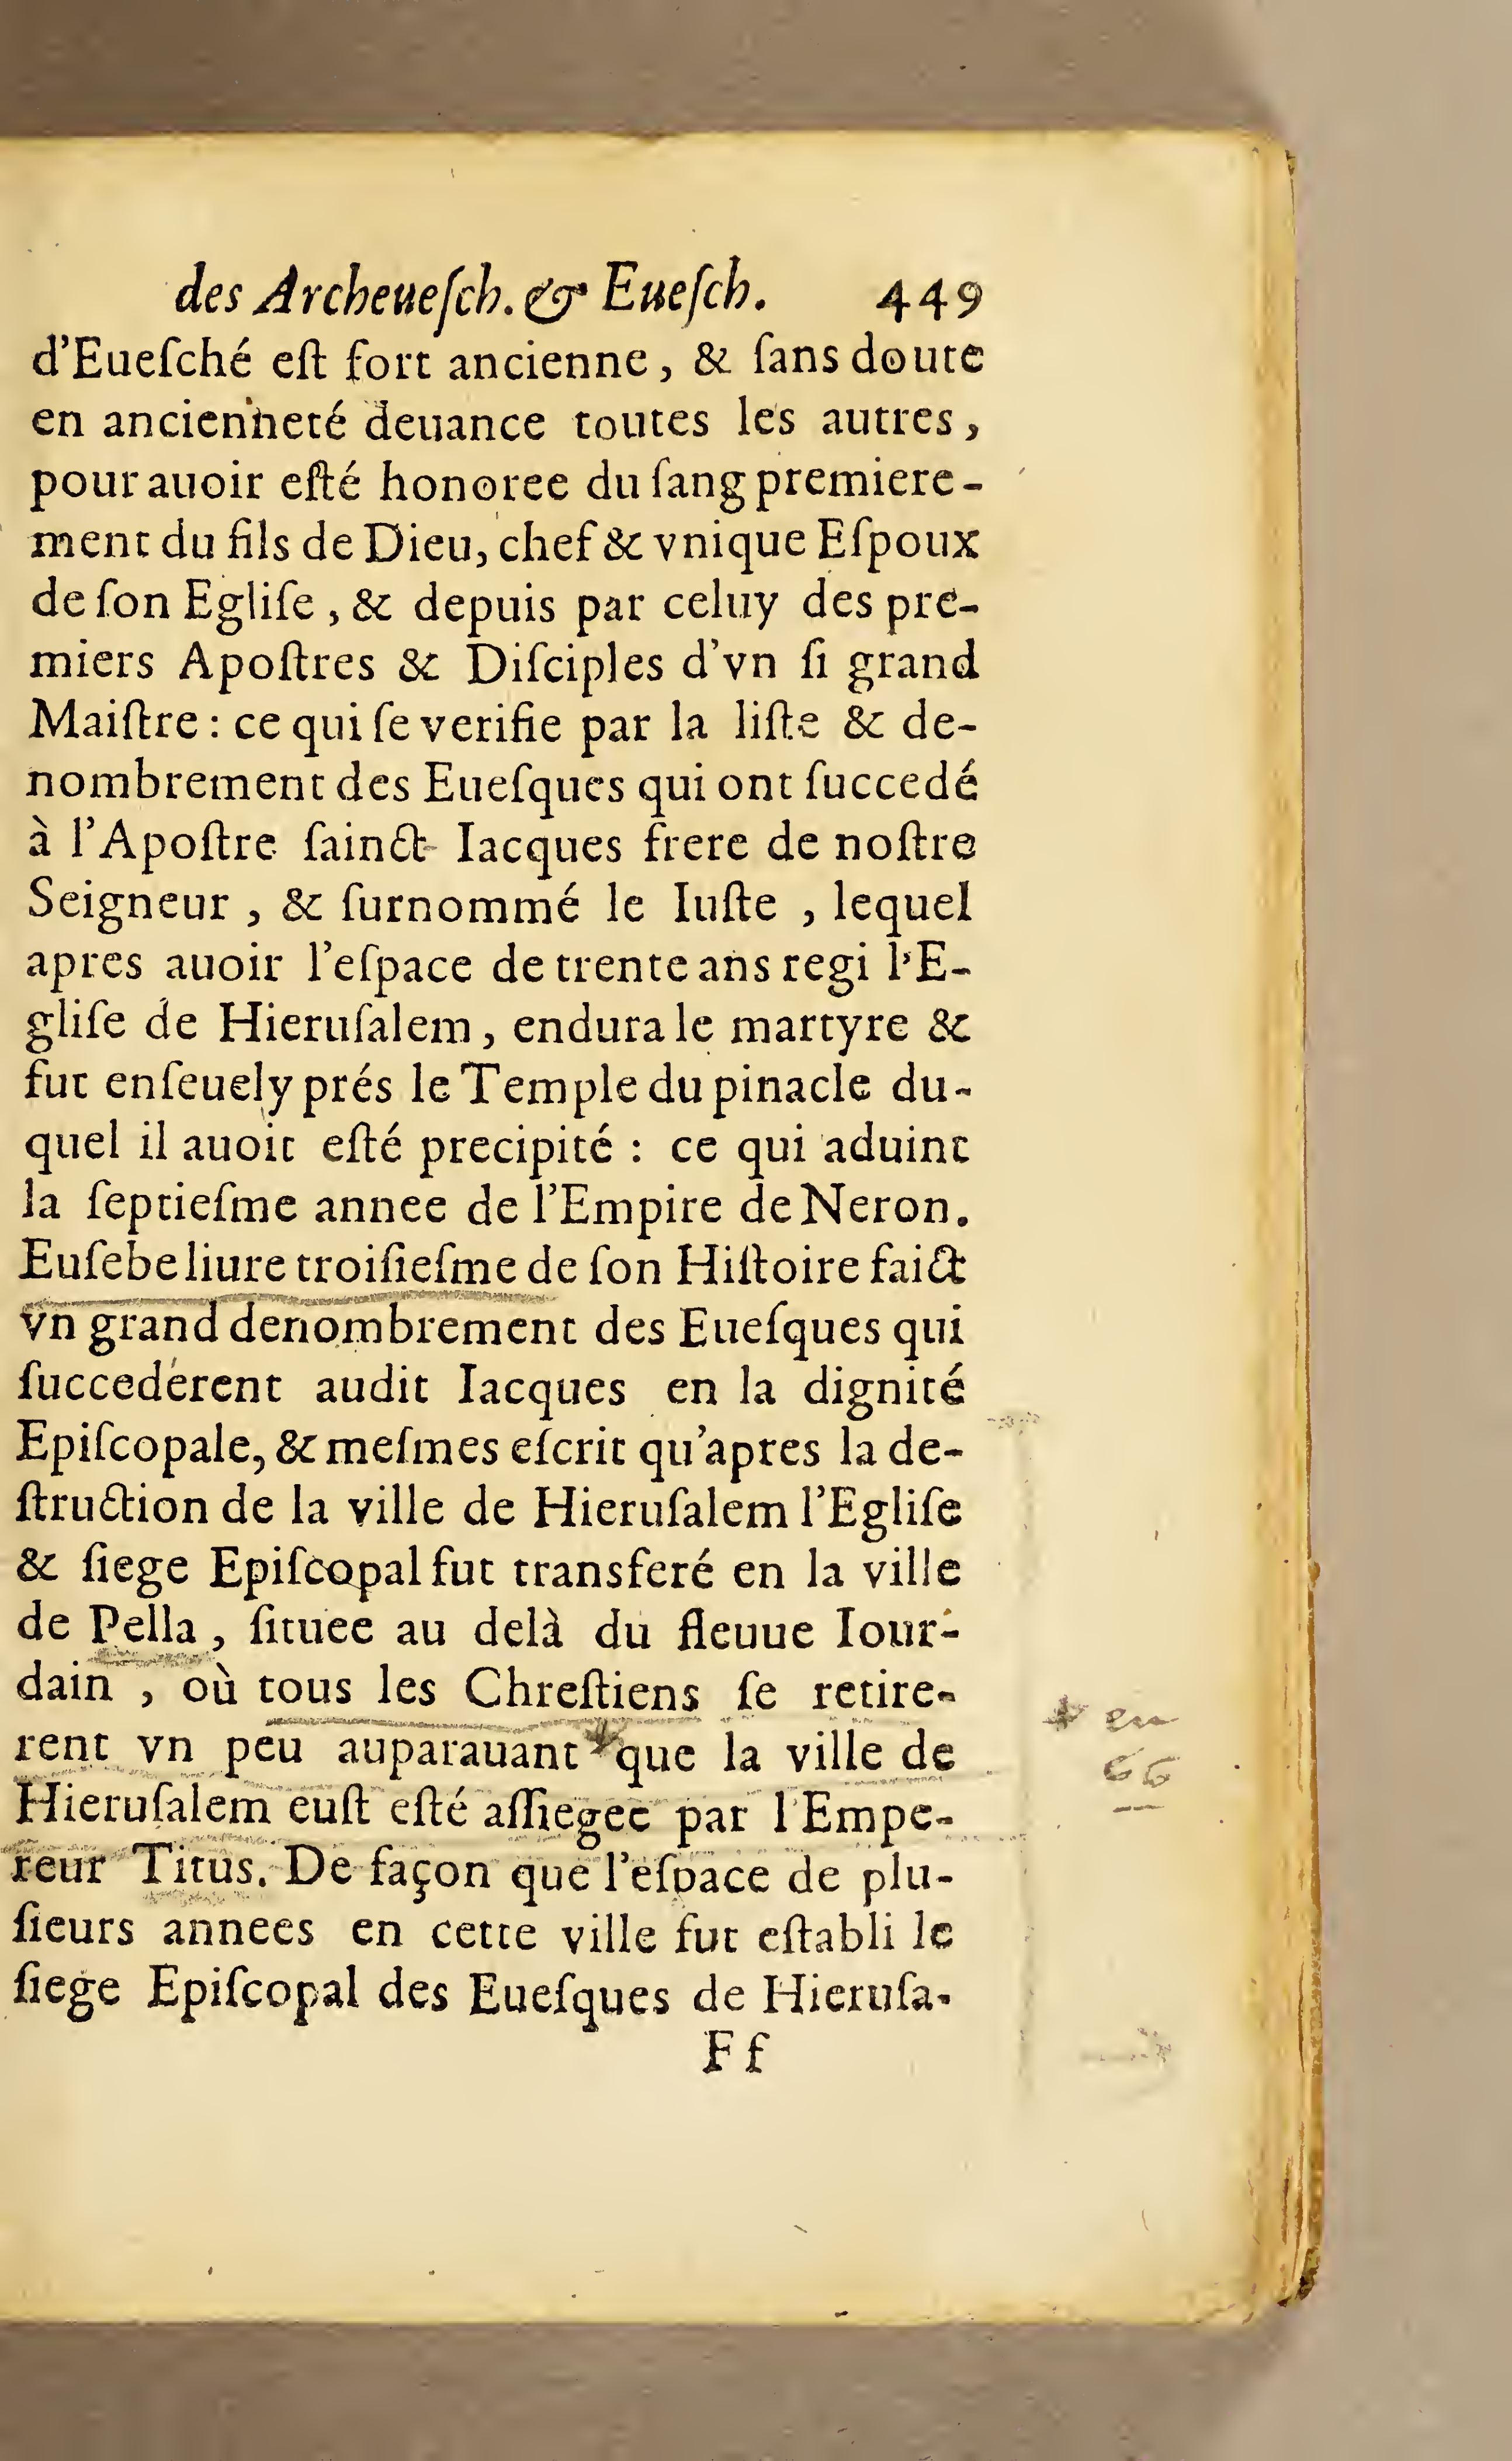 des Archeueſch. & Eueſch. 449
d'Eueſché eſt fort ancienne, & ſans doute
en ancienneté deuance toutes les autres,
pour auoir eſté honoree du ſang premiere-
ment du fils de Dieu, chef & vnique Eſpoux
de ſon Egliſe, & depuis par celuy des pre-
miers Apoſtres & Diſciples d'vn ſi grand
Maiſtre : ce qui ſe verifie par la liſte & de-
nombrement des Eueſques qui ont ſuccedé
à l'Apoſtre ſainct Iacques frere de noſtre
Seigneur , & ſurnommé le Iuſte , lequel
apres auoir l'eſpace de trente ans regi l'E-
gliſe de Hieruſalem, endura le martyre &
fut enſeuely prés le Temple du pinacle du-
quel il auoit eſté precipité : ce qui aduint
la ſeptieſme annee de l'Empire de Neron.
Euſebe liure troiſieſme de ſon Hiſtoire faict
vn grand denombrement des Eueſques qui
ſuccederent audit Iacques en la dignité
Epiſcopale, & meſmes eſcrit qu'apres la de-
ſtruction de la ville de Hieruſalem l'Egliſe
& ſiege Epiſcopal fut transferé en la ville
de Pella , ſituee au delà du fleuue Iour-
dain , où tous les Chreſtiens ſe retire-
rent vn peu auparauant * que la ville de
* en
66
Hieruſalem euſt eſté aſſiegee par l'Empe-
reur Titus. De façon que l'eſpace de plu-
ſieurs annees en cette ville fut eſtabli le
ſiege Epiſcopal des Eueſques de Hieruſa-
F f